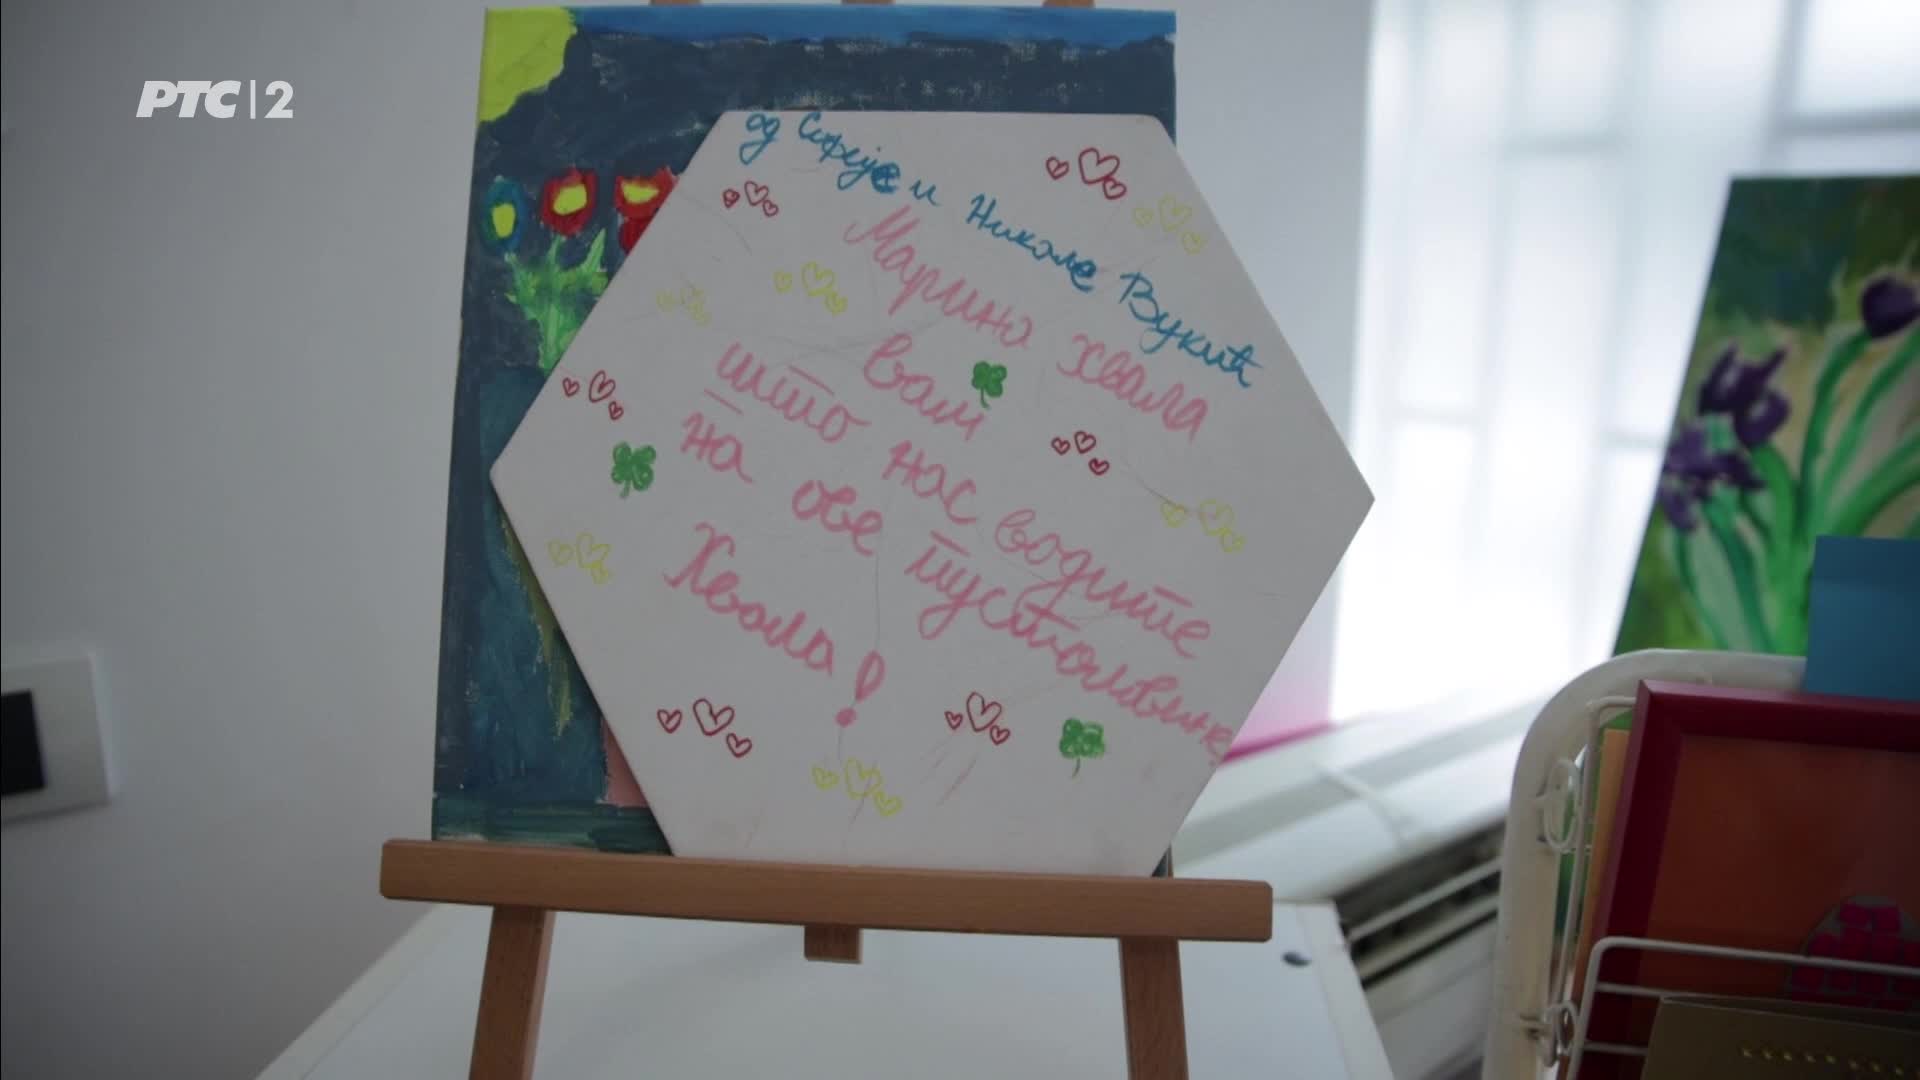 РТС|2
од Софије и Николе Вукић
Марина хвала
вам
што нас водите
на ове пустоловине
Хвала!